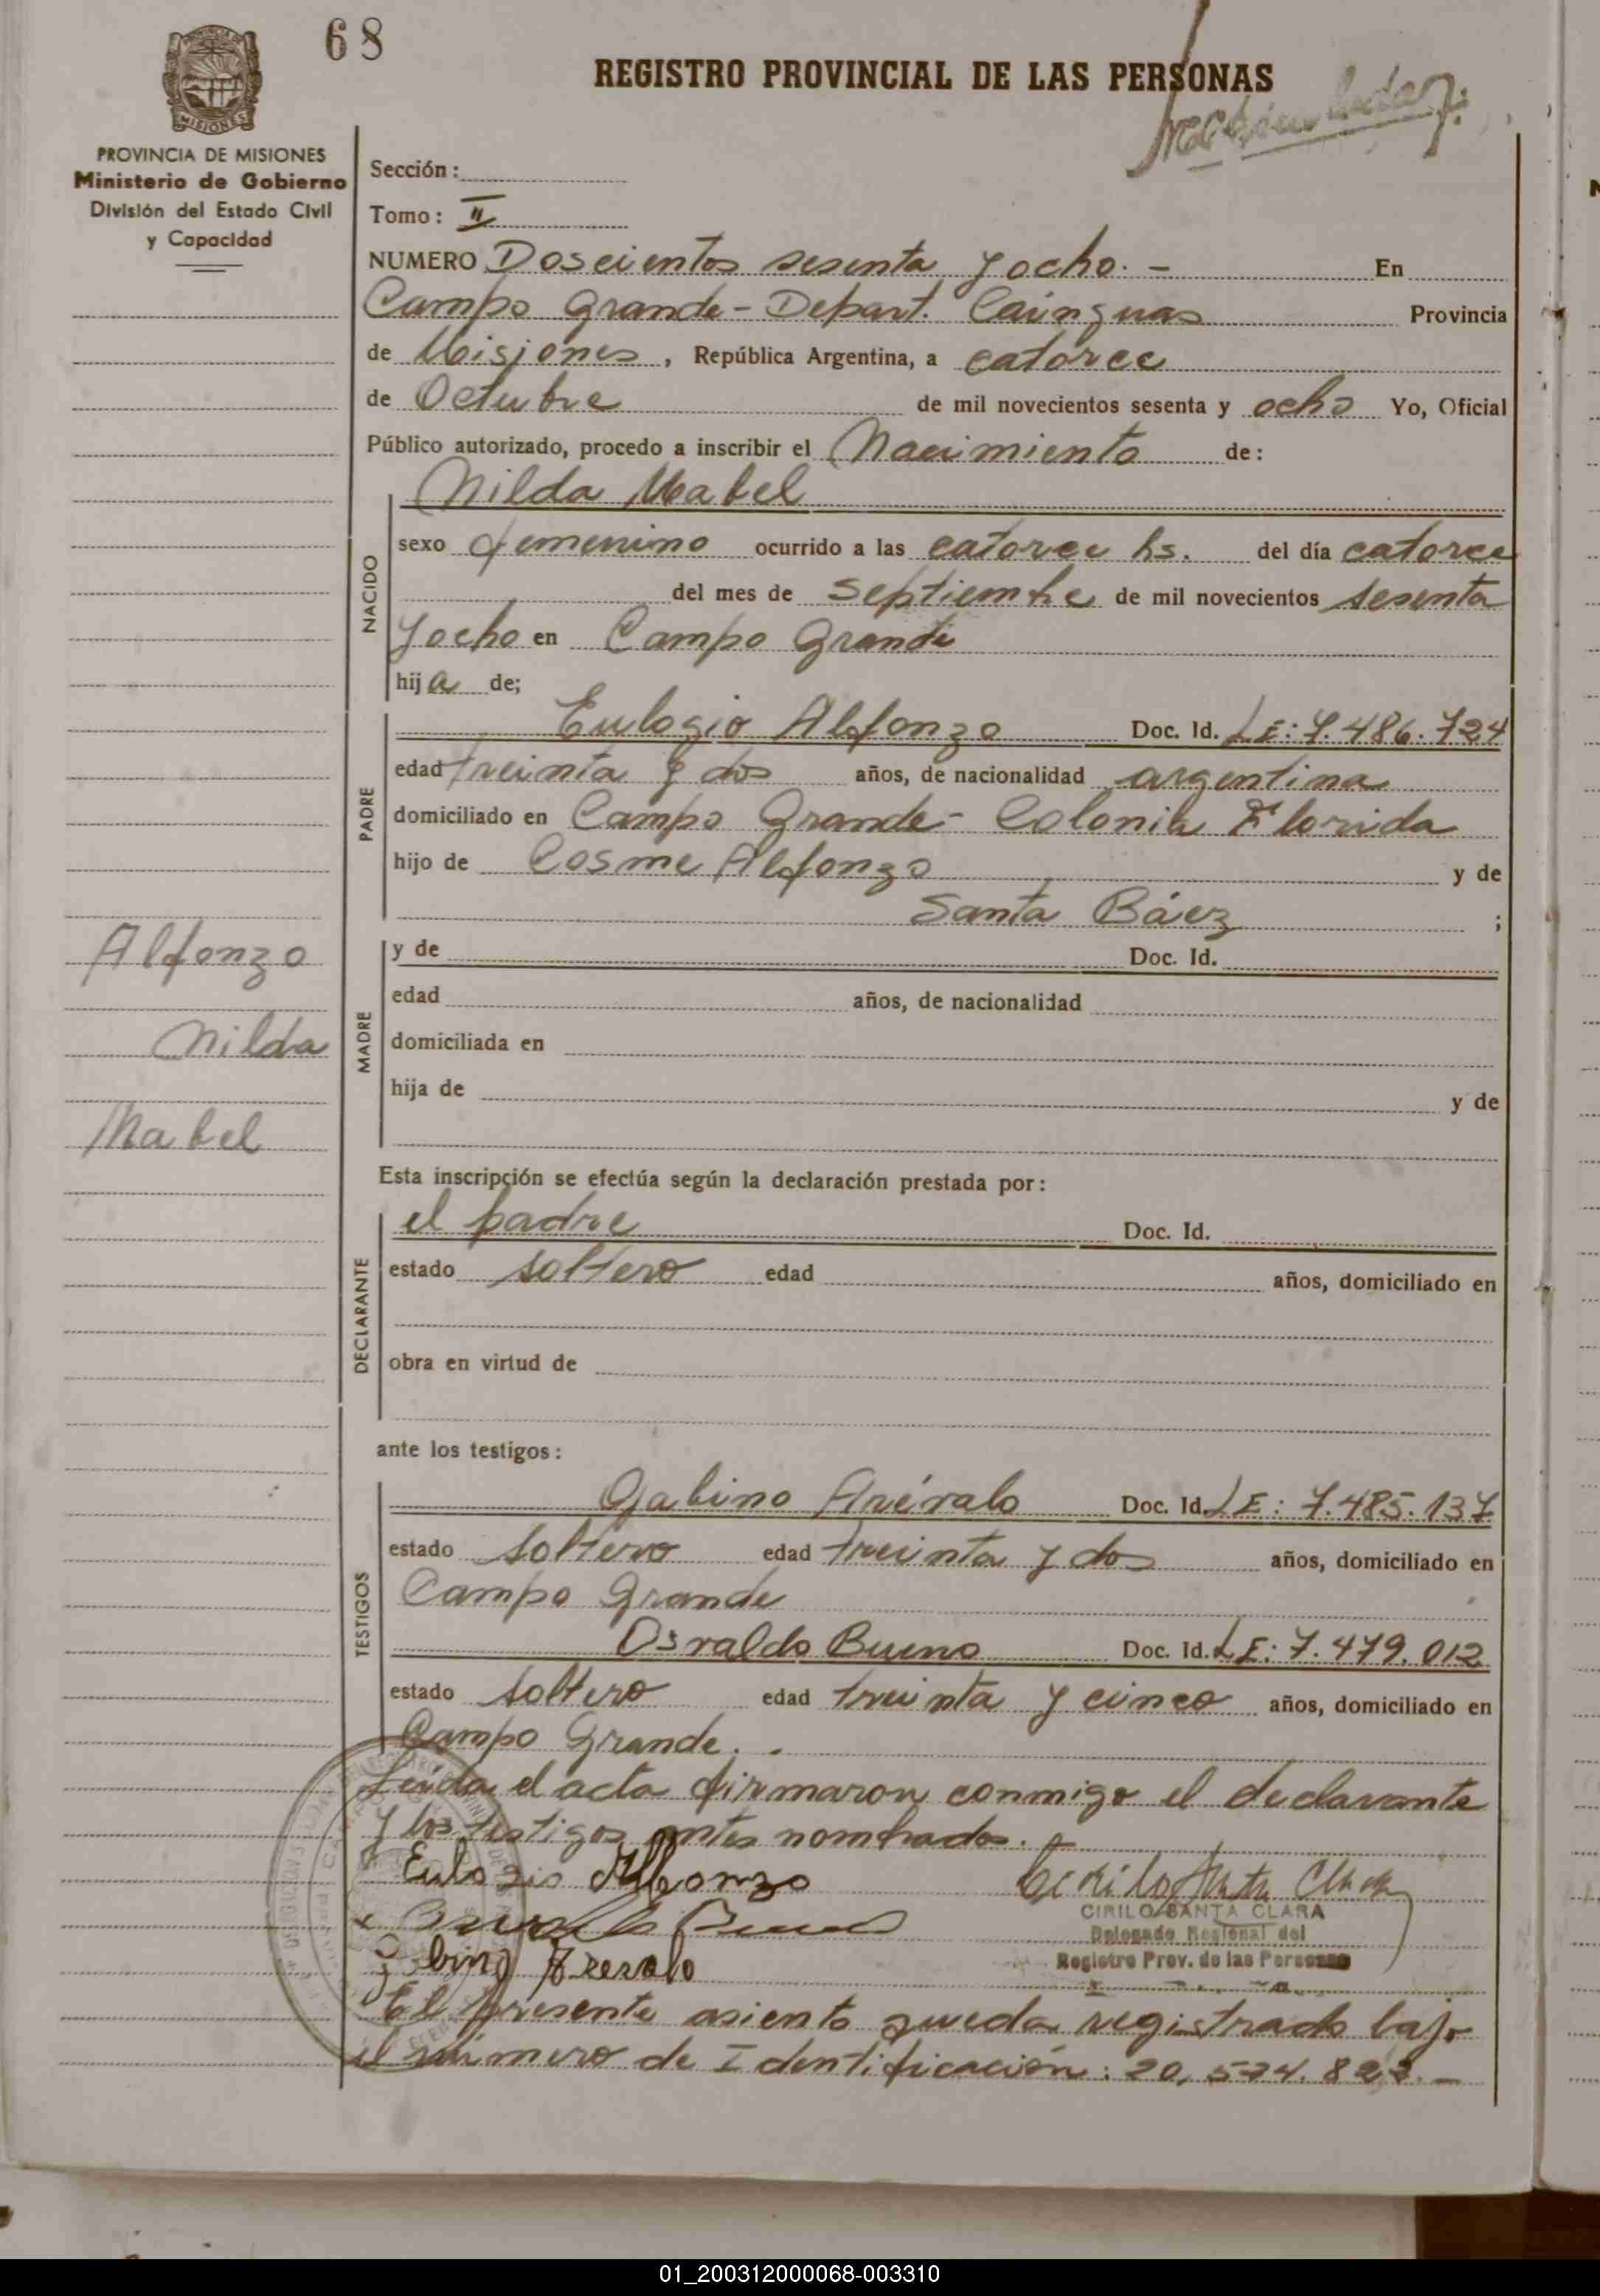 68
REGISTRO PROVINCIAL DE LAS PERSONAS
MISIONES
PROVINCIA DE MISIONES
Ministerio de Gobierno
División del Estado Civil
y Capacidad
Sección:
Tomo: II
NUMERO Doscientos sesenta y ocho. - En
Campo Grande - Depart. Cainguas Provincia
de Misiones, República Argentina, a catorce
de Octubre de mil novecientos sesenta y ocho Yo, Oficial
Público autorizado, procedo a inscribir el Nacimiento de:
Nilda Mabel
NACIDO
sexo femenino ocurrido a las catorce hs. del día catorce
del mes de septiembre de mil novecientos sesenta
y ocho en Campo Grande
hija de;
PADRE
Eulogio Alfonzo Doc. Id. LE: 7.486.724
edad treinta y dos años, de nacionalidad argentina
domiciliado en Campo Grande - Colonia Florida
hijo de Cosme Alfonzo y de
Santa Báez ;
Alfonzo
Nilda
Mabel
MADRE
y de Doc. Id.
edad años, de nacionalidad
domiciliada en
hija de y de
Esta inscripción se efectúa según la declaración prestada por:
DECLARANTE
el padre Doc. Id.
estado soltero edad años, domiciliado en
obra en virtud de
ante los testigos:
TESTIGOS
Gabino Arévalo Doc. Id. LE: 7.485.137
estado soltero edad treinta y dos años, domiciliado en
Campo Grande
Osvaldo Bueno Doc. Id. LE: 7.479.012
estado soltero edad treinta y cinco años, domiciliado en
Campo Grande.
Leída el acta firmaron conmigo el declarante
y los testigos antes nombrados.
Eulogio Alfonzo
Cirilo Santa Clara
CIRILO SANTA CLARA
Delegado Regional del
Registro Prov. de las Personas
Gabino Arevalo
El presente asiento queda registrado bajo
el número de Identificación:
01_200312000068-003310